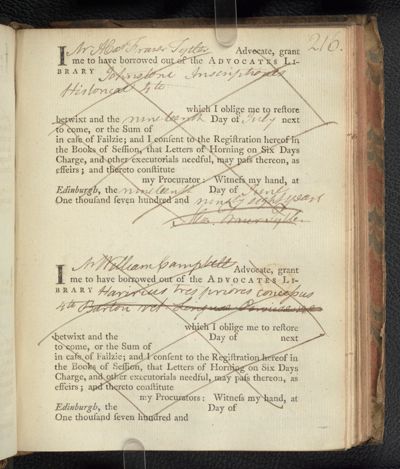 216.
I Mr Alexr Fraser Tytler Advocate, grant
me to have borrowed out of the ADVOCATES LI-
BRARY Johnstone Inscriptiones
Historicae 4to
which I oblige me to reſtore
betwixt and the nineteenth Day of July next
to come, or the Sum of
in caſe of Failzie; and I conſent to the Regiſtration hereof in
the Books of Seſſion, that Letters of Horning on Six Days
Charge, and other executorials needful, may paſs thereon, as
effeirs; and thereto conſtitute
my Procurator: Witneſs my hand, at
Edinburgh, the nineteenth Day of June
One thouſand ſeven hundred and ninety eight years
Alex Fraser Tytler
I Mr William Campbell Advocate, grant
me to have borrowed out of the ADVOCATES LI-
BRARY tres priores
4to Barton
which I oblige me to reſtore
betwixt and the Day of next
to come, or the Sum of
in caſe of Failzie; and I conſent to the Regiſtration hereof in
the Books of Seſſion, that Letters of Horning on Six Days
Charge, and other executorials needful, may paſs thereon, as
effeirs; and thereto conſtitute
my Procurators: Witneſs my hand, at
Edinburgh, the Day of
One thouſand ſeven hundred and